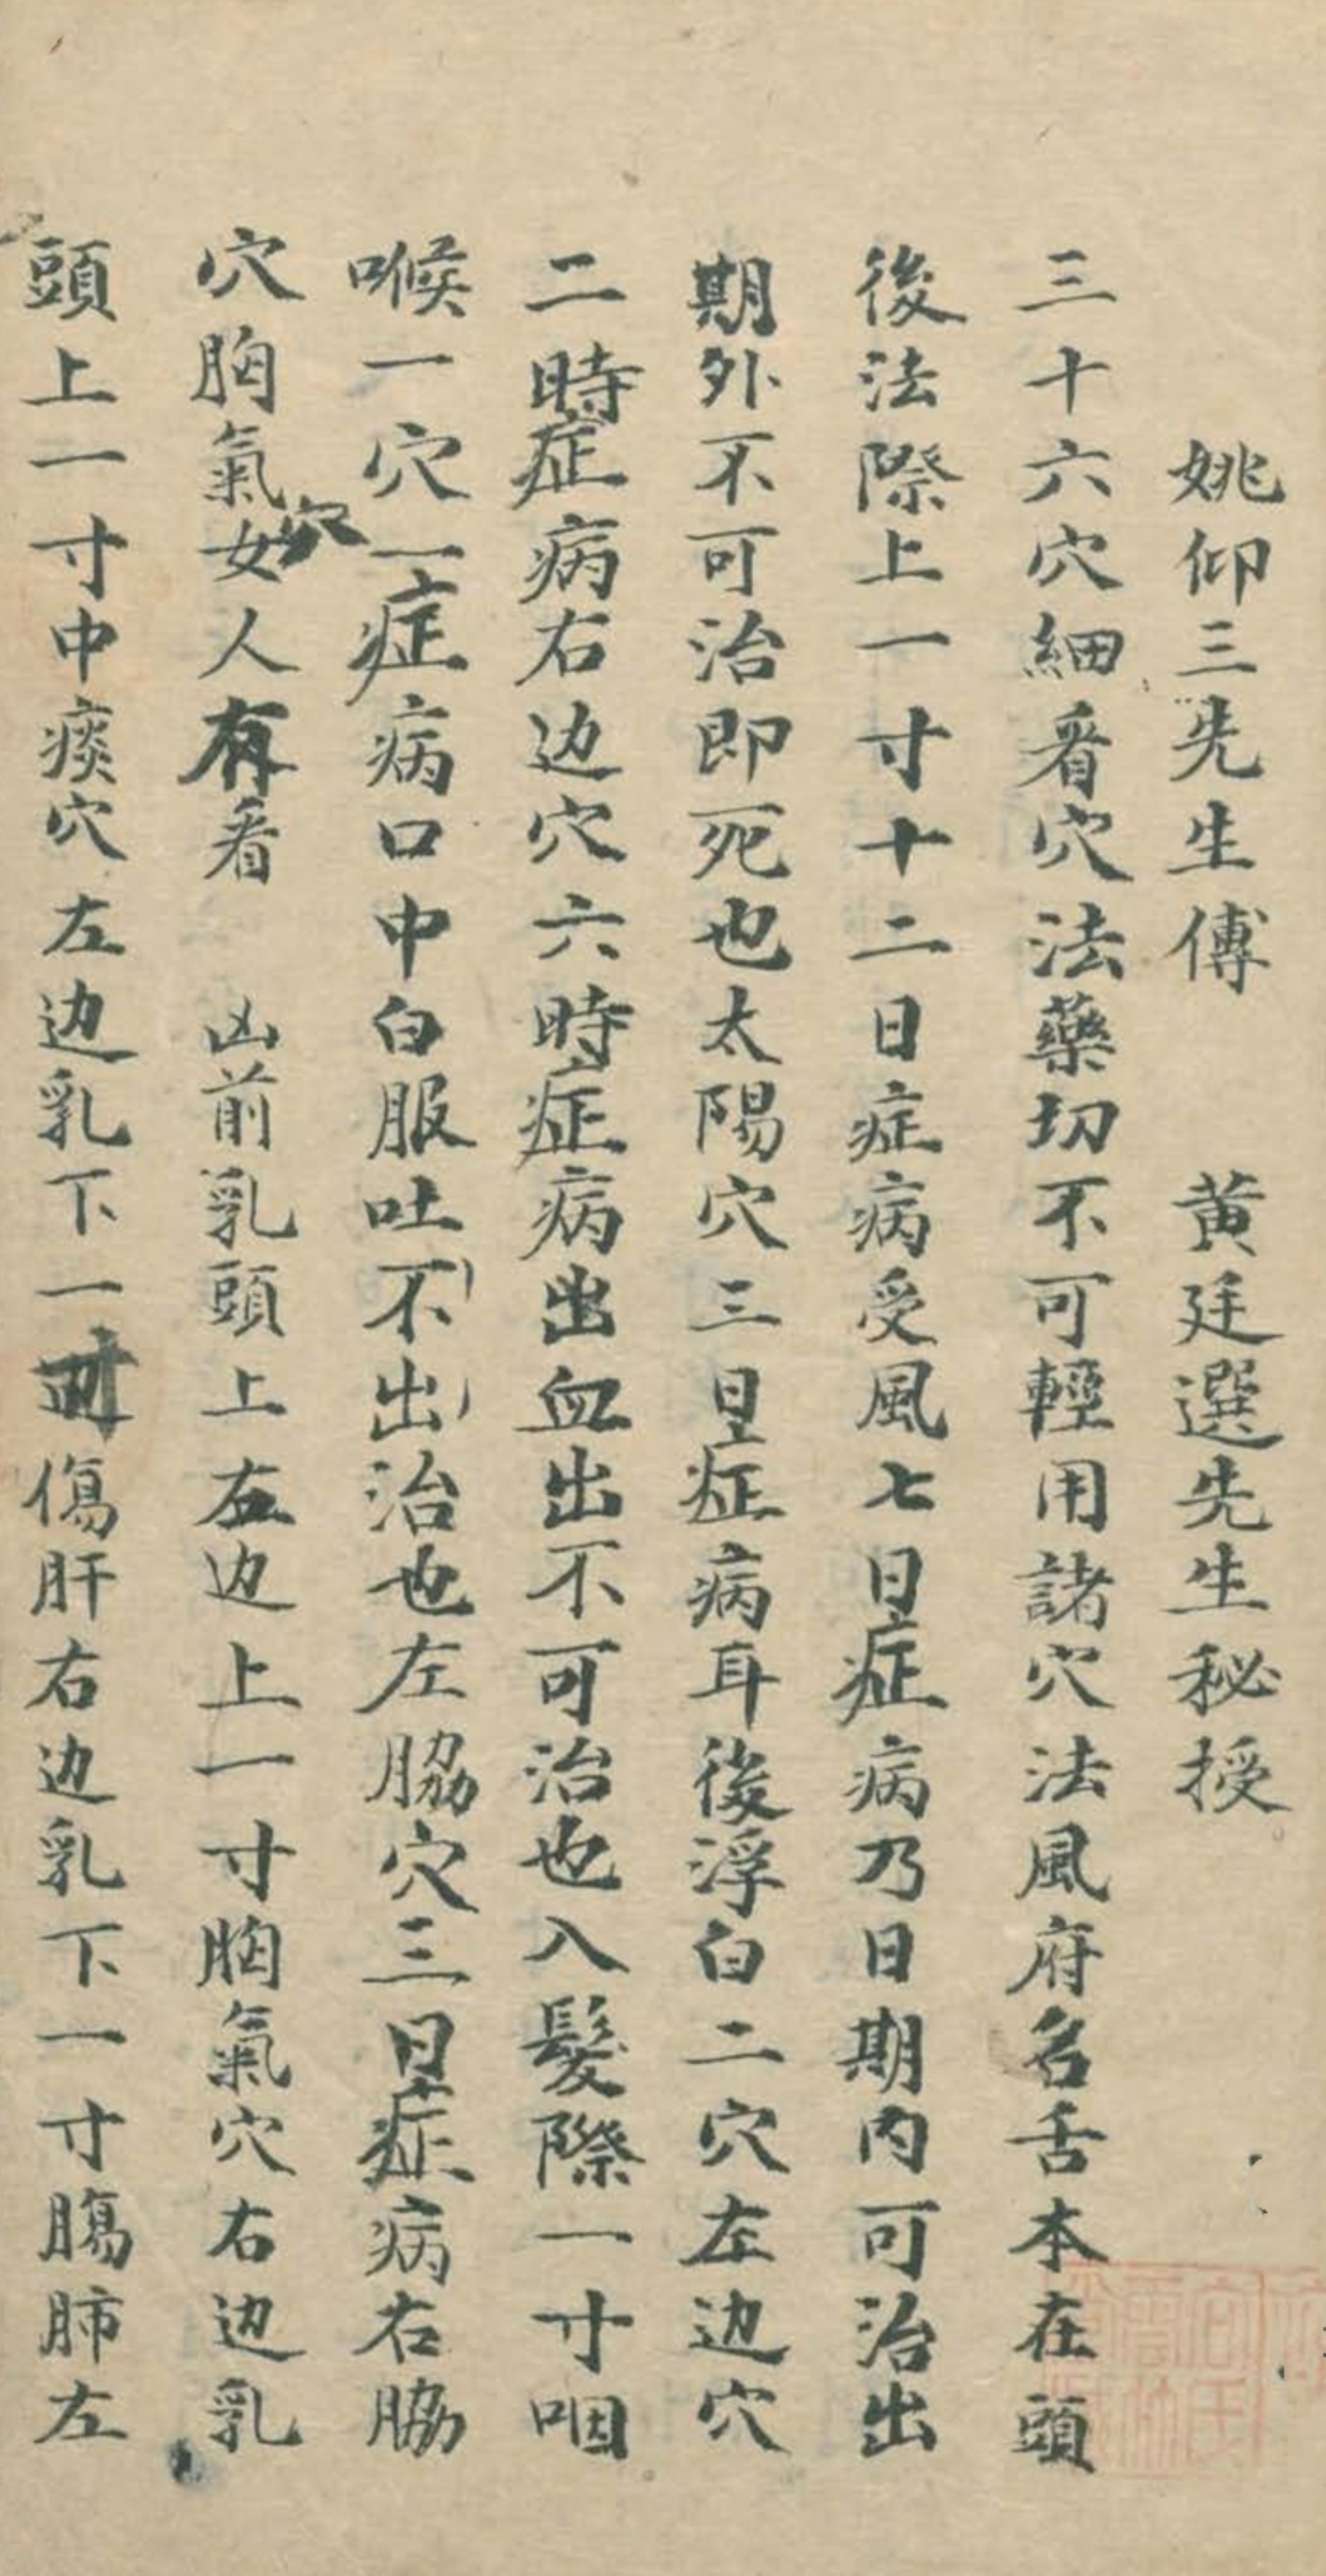 姚仰三先生傅 黄廷選先生秘授
三十六穴細看穴法藥切不可輕用諸穴法風府名舌本在頭
後法際上一寸十二日症病受風七日症病乃日期内可治出
期外不可治即死也太陽穴三日症病耳後浮白二穴左边穴
二時症病右边穴六時症病出血出不可治也入髮際一寸咽
喉一穴一症病口中白服吐不出治也左脇穴三日症病右脇
穴胸氣穴女人有看 凶前乳頭上左边上一寸胸氣穴右边乳
頭上一寸中痰穴左边乳下一寸傷肝右边乳下一寸腸肺左